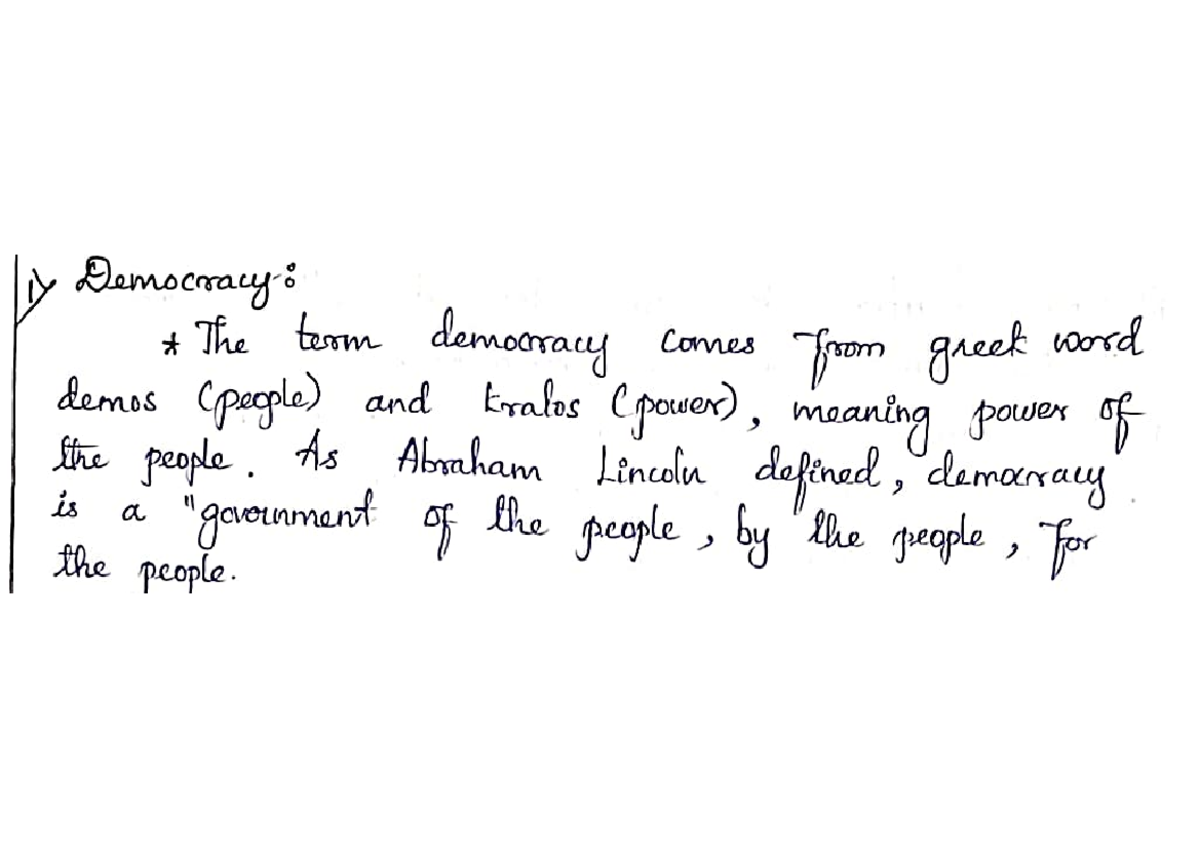 1) Democracy :
* The term democracy comes from greek word
demos (people) and kratos (power), meaning power of
the people. As Abraham Lincoln defined, democracy
is a "government of the people, by the people, for
the people.